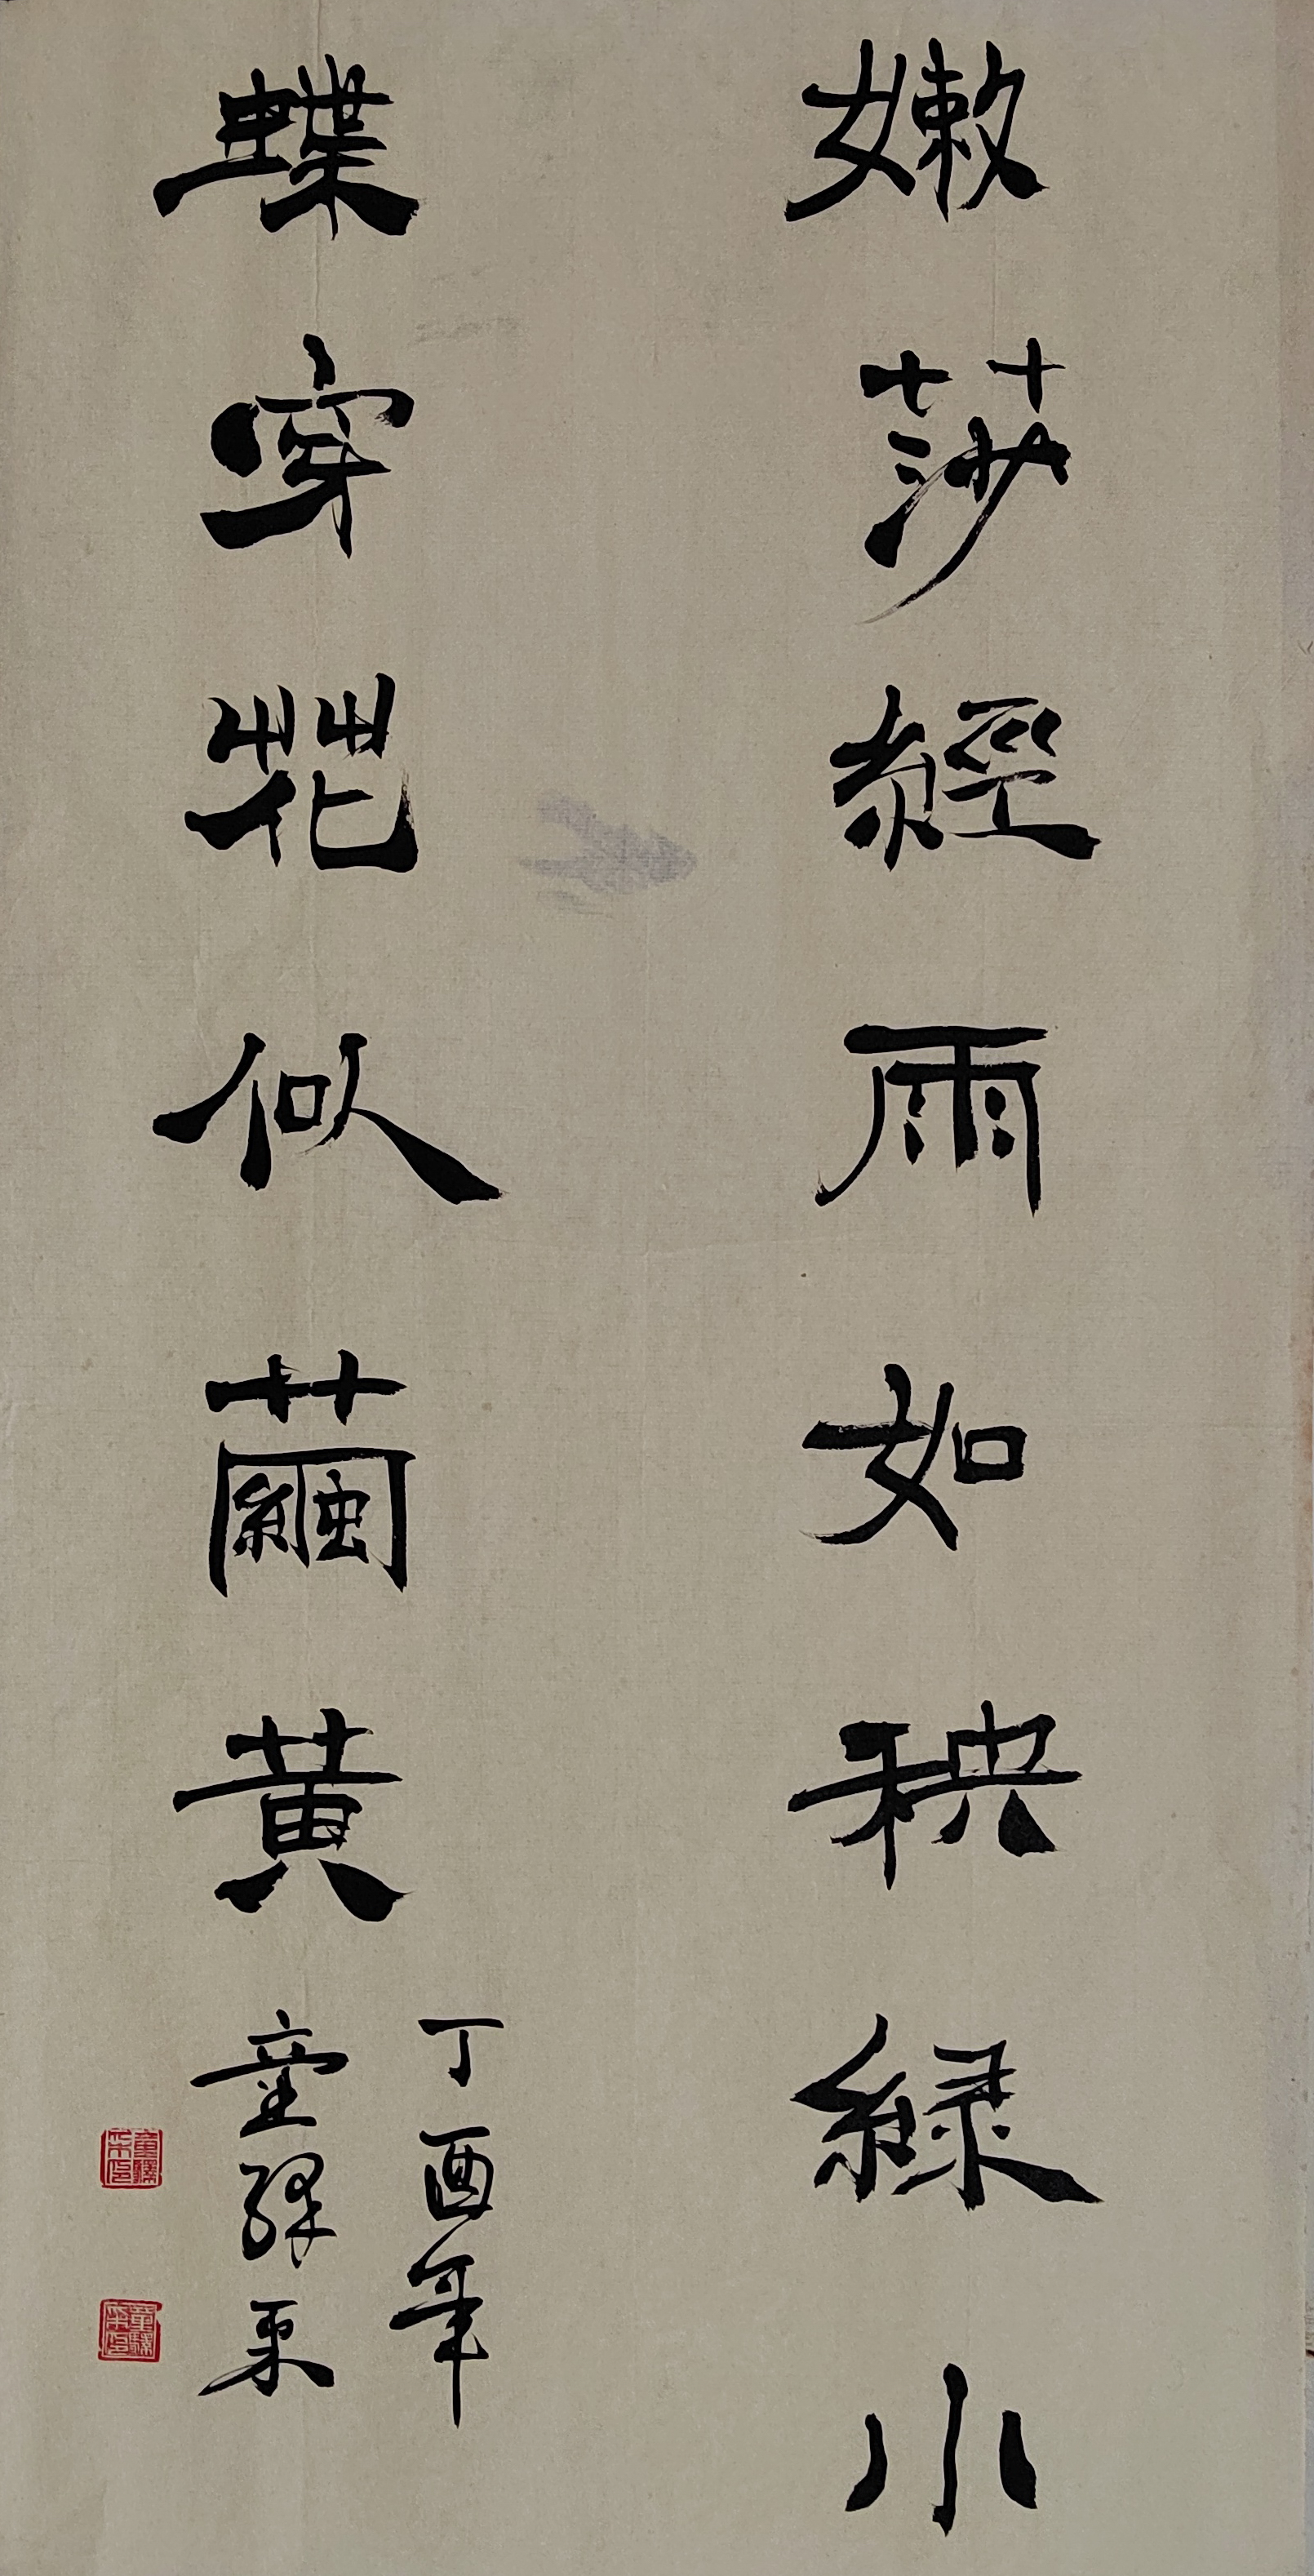 嫩莎經雨如秧緑小
蝶穿花似繭黃
丁酉年
童驛采